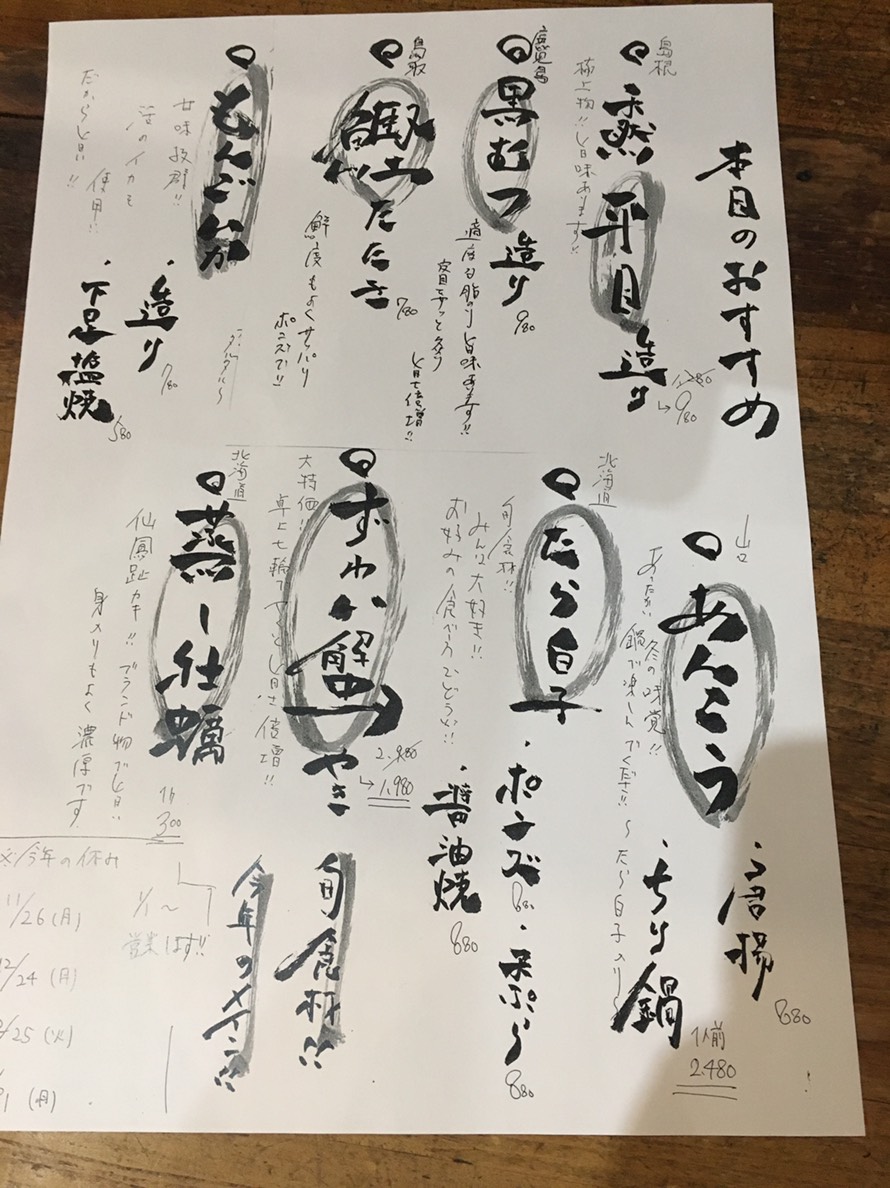 本日のおすすめ
島根
天然 平目 造り
1,280
→980
極上物!!旨味あります!!
鹿児島
黒むつ 造り
980
適度な脂のり旨味あります!!
旨さ倍増!!
鳥取
たたき
780
鮮度もよくサッパリ
ポン酢で!!
もんごいか
甘味抜群!!
活のイカを
使用!!
だから旨い!!
・造り
780
・下足塩焼
580
山口
あんこう
冬の味覚!!
あったかい鍋で楽しんでください!! 〜たら白子入り〜
・唐揚
880
・ちり鍋
1人前
2,480
北海道
たら白子
旬食材!!
みんな大好き!!
お好みの食べ方でどうぞ!!
・ポンズ
680
・天ぷら
880
・醤油焼
880
ずわい蟹 やき
2,480
→1,980
大特価!!
旬食材!!
今年のメイン!!
北海道
蒸し牡蠣
1ヶ
300
仙鳳趾カキ!!ブランド物で旨い!!
身入りもよく濃厚です
※今年の休み
11/26(月)
12/24(月)
25(火)
(月)
1/1〜
営業します!!